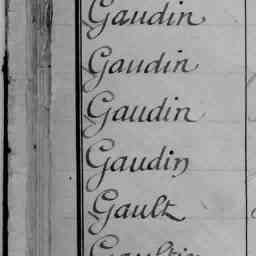 Gaudin
Gaudin
Gaudin
Gaudin
Gault